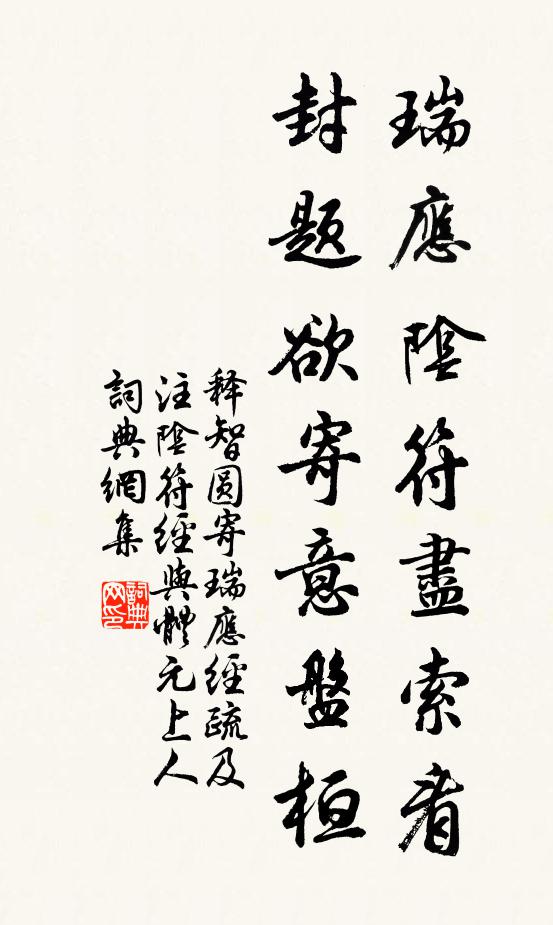 瑞應陰符盡索看
封题欲寄意盤桓
释智圆寄瑞應經疏及
注陰符經與體元上人
詞典網集
詞典网印